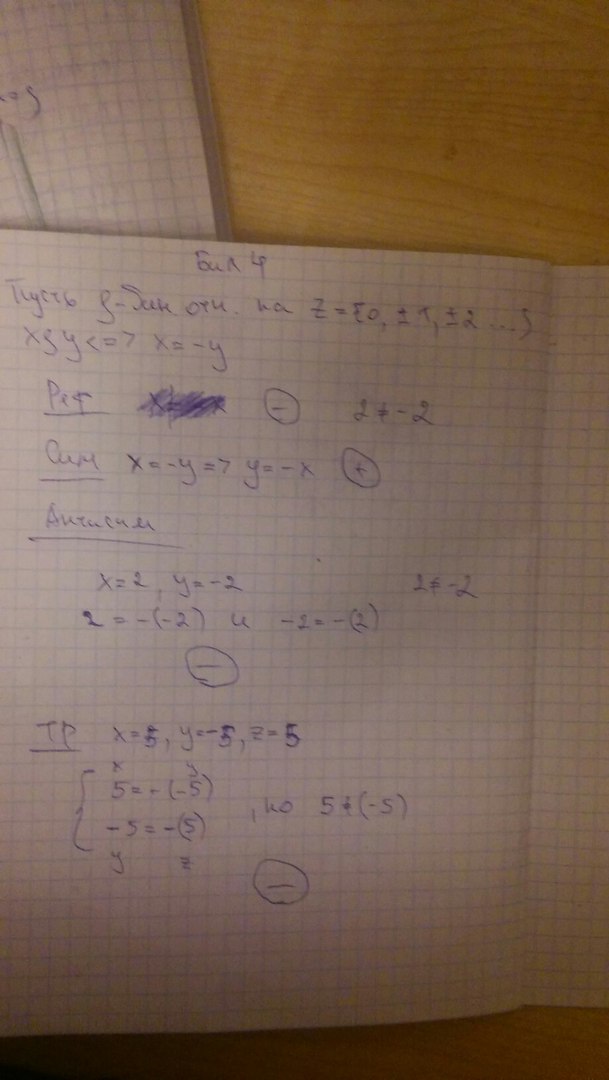 Бил 4
Пусть ρ-бин. отн. на Z = {0, ±1, ±2 ...}
xρy <=> x = -y
Реф (-) 2 ≠ -2
Сим x = -y => y = -x (+)
Антисим
x = 2, y = -2 2 ≠ -2
2 = -(-2) и -2 = -(2)
(-)
ТР x = 5, y = -5, z = 5
x y
{ 5 = -(-5)
-5 = -(5) , но 5 ≠ (-5)
y z
(-)